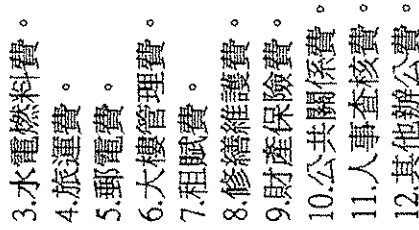 3.水電燃料費。
4.旅運費。
5.郵電費。
6.大樓管理費。
7.租賦費。
8.修繕維護費。
9.財產保險費。
10.公共關係費。
11.人事查核費。
12.其他辦公費。